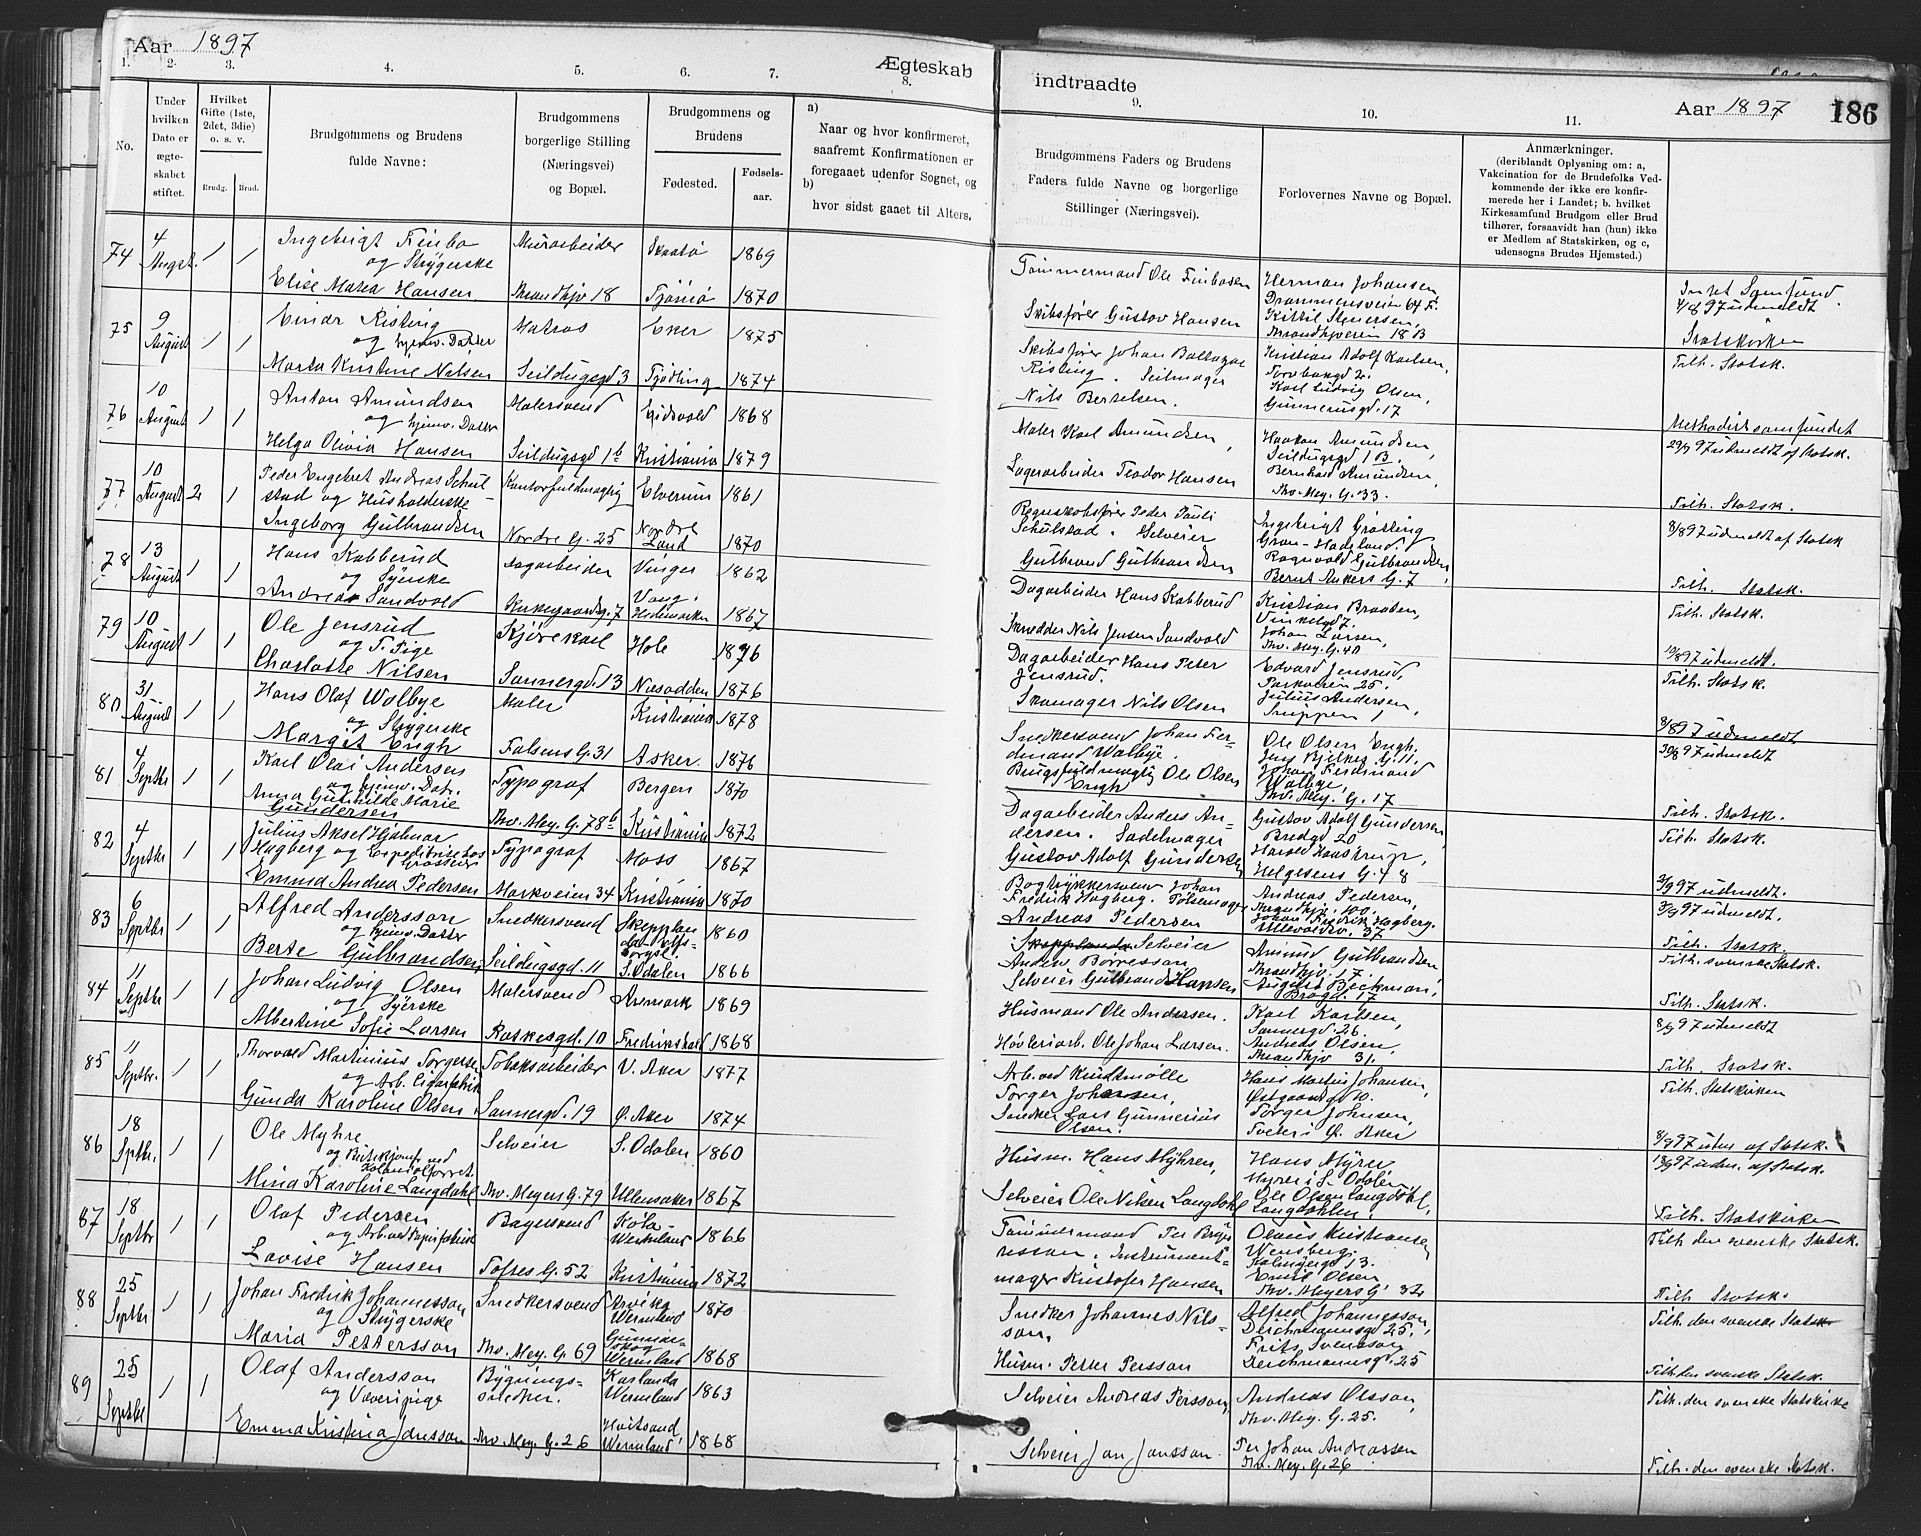 Aar 1897
Ægteskab
indtraadte
Aar 1897
186
1. 2. 3. 4. 5. 6. 7. 8.
9. 10. 11.
No.
Under hvilken Dato er ægte- skabet stiftet.
Hvilket Gifte (1ste, 2det, 3die) o. s. v.
Brudg. Brud.
Brudgommens og Brudens fulde Navne:
Brudgommens borgerlige Stilling (Næringsvei) og Bopæl.
Brudgommens og Brudens
Fødested.
Fødsels- aar.
a) Naar og hvor konfirmeret, saafremt Konfirmationen er foregaaet udenfor Sognet, og
b) hvor sidst gaaet til Alters,
Brudgommens Faders og Brudens Faders fulde Navne og borgerlige Stillinger (Næringsvei).
Forlovernes Navne og Bopæl.
Anmærkninger.
(deriblandt Oplysning om: a, Vakcination for de Brudefolks Ved- kommende der ikke ere konfir- merede her i Landet; b. hvilket Kirkesamfund Brudgom eller Brud tilhører, forsaavidt han (hun) ikke er Medlem af Statskirken, og c, udensogns Brudes Hjemsted.)
74 4 August 1 1
Ingebrigt Finbo Murarbeider 1869
og Strygerske
Elise Maria Hansen 18 Tjömö 1870
Tömmermand Ole Finbosen
Skibsfører Gustav Hansen
Herman Johansen
Drammensveien 64 F.
Kittil Stenersen,
18 B
4/8 97 udmeldt
Statskirken
75 9 August 1 1
Einar Risting Matros Eker 1875
og hjemv. Datter
Marta Kristine Nilsen Seildugsgd. 3 Tjödling 1874
Skibsfører Johan Baltazar
Risting. Seilmager
Nils Bertelsen.
Kristian Adolf Karlsen,
Karl Ludvig Olsen,
Gunnerusgd. 17
Tilh. Statsk.
76 10 August 1 1
Anton Amundsen Malersvend Eidsvold 1868
og hjemv. Datter
Helga Olivia Hansen Seildugsgd 1b Kristiania 1879
Maler Karl Amundsen,
Lagerarbeider Teodor Hansen
Haakon Amundsen,
Seildugsgd 1 B.
Bernhard Amundsen,
Thv. Mey. G. 33.
Methodistsamfundet
97 udmeldt af Statsk.
77 10 August 2 1
Peder Engebret Andreas Schul- Kontorfuldmægtig Elverum 1861
stad og Husholderske
Ingeborg Gulbrandsen Nordre G. 25 Nordre Land 1870
Regnskabsfører Peder Pauli
Schulstad. Selveier
Gulbrand Gulbrandsen
Ingebrigt Grötting
Gran Hadeland.
Ragnvald Gulbrandsen,
Bernt Ankers G. 7
Tilh. Statsk.
8/8 97 udmeldt af Statsk
78 13 August 1 1
Hans Kabberud Dagarbeider Vinger 1862
og Syerske
Andrea Sandvold Kirkegaardsg. 7 Vang, Hedemarken 1867
Dagarbeider Hans Kabberud
Skrædder Nils Jensen Sandvold
Kristian Braaten,
Johan Larsen,
Thv. Mey. G. 40
Tilh. Statsk.
Tilh. Statsk.
79 10 August 1 1
Ole Jensrud Kjørekarl Hole 1876
og T. Pige
Charlotte Nilsen Sannergd. 13 Næsodden 1876
Dagarbeider Hans Peter
Jensrud.
Skomager Nils Olsen
Edvard Jensrud,
Parkveien 25.
Julius Andersen,
97 udmeldt.
Tilh. Statsk.
80 31 August 1 1
Hans Olaf Wolbye Maler Kristiania 1878
og Strygerske
Margit Engh Falsens G. 31 Asker 1876
Snedkersvend Johan Fer-
dinand Wolbye.
Brugsfuldmægtig Ole Olsen
Engh
Ole Olsen Engh.
Jens Bjelkes G. 11.
Johan Ferdinand
Wolbye,
Thv. Mey. G. 17
97 udmeldt
97 udmeldt
81 4 Septbr 1 1
Karl Olai Andersen Typograf Bergen 1870
og hjemv. Datr.
Anna Gunhilde Marie
Gundersen Thv. Mey. G. 78b Kristiania 1872
Dagarbeider Anders An-
dersen. Sadelmager
Gustav Adolf Gundersen
Gustav Adolf Gundersen
Bredgd 20
Harald Kaastrup,
Helgesens G. 48
Tilh. Statsk.
Tilh. Statsk.
82 4 Septbr 1 1
Julius Aksel Hjalmar Typograf Moss 1867
Hagberg og Expeditrice hos
Emma Andrea Pedersen Markveien 34 Kristiania 1870
Bogtrykkersvend Johan
Fredrik Hagberg. Pølsemager
Andreas Pedersen
Andreas Pedersen,
Johan Fredrik Hagberg.
Ullevoldsv. 37
97 udmeldt.
97 udmeldt.
83 6 Septbr 1 1
Alfred Andersson Snedkersvend 1860
og hjemv. Datter
Berte Gulbrandsen Seildugsgd. 11 S. Odalen 1866
Selveier
Anders Börresson
Selveier Gulbrand Hansen
Amund Gulbrandsen
August Beckman,
Tilh. Statsk.
Tilh. svenske Statsk.
84 11 Septbr 1 1
Johan Ludvig Olsen Malersvend Aremark 1869
og Syerske
Albertine Sofie Larsen 10 Fredrikshald 1868
Husmand Ole Andersen.
Høvleriarb. Ole Johan Larsen.
Karl Karlsen,
Sannergd. 26.
Andreas Olsen,
31.
Tilh. Statsk.
97 udmeldt
85 11 Septbr. 1 1
Thorvald Martinius Torgersen Tobaksarbeider V. Aker 1877
og Arb. Cigarfabrik
Gunda Karoline Olsen Sannergd. 19 Ø. Aker 1874
Arb. ved Kindtmølle
Torger Johansen,
Snedker Lars Gunnerius
Olsen.
Hans Martin Johansen,
Torger Johnsen,
Tveter i Ø. Aker
Tilh. Statsk.
Tilh. Statskirken
86 18 Sptbr. 1 1
Ole Myhre Selveier S. Odalen 1860
og Butikjomf. ved
Kolonialforret.
Mina Karoline Langdahl Thv. Meyers G. 79 Ullensaker 1867
Husm. Hans Myhren,
Selveier Ole Nilsen Langdahl
Hans Myrer
Myrer i S. Odalen,
Ole Olsen Langdahl,
Langdahlen.
97 udm. af Statsk.
97 udm. af Statsk.
87 18 Septbr 1 1
Olaf Pedersen Bagersvend Köla Wermland 1866
og Arb. ved Papirfabrik
Lovise Hansen Toftes G. 52 Kristiania 1872
Tömmermand Per Börje-
resson. Instrument-
mager Kristofer Hansen
Olaus Kristiansen
Wensberg.
13.
Emil Olsen
Thv. Meyers G. 32
Tilh. Statskirken
Tilh den svenske Statsk.
88 25 Septbr 1 1
Johan Fredrik Johannesson Snedkersvend Arvika Wermland 1870
og Strygerske
Maria Pettersson Thv. Mey. G. 69 Gunnar- skog Wermland 1868
Snedker Johannes Nils-
son,
Husm. Petter Persson
Alfred Johannesson,
Deichmannsgd 25,
Frits Svensson
Deichmannsgd. 25
Tilh Statsk.
Tilh. den svenske Statsk
89 25 Septbr 1 1
Olaf Andersson Bygnings- Karlanda 1863
og Væveripige snedker. Wermland
Emma Kristina Jansson Thv. Mey. G. 26 Wermland 1868
Selveier Andreas Persson,
Selveier Jan Jansson.
Andreas Olsson,
Thv. Mey. G. 25.
Per Johan Andreassen
Thv. Mey. G. 26
Tilh. den svenske Statsk.
Tilh. den svenske Statskirke
Tilh. den svenske Statsk.